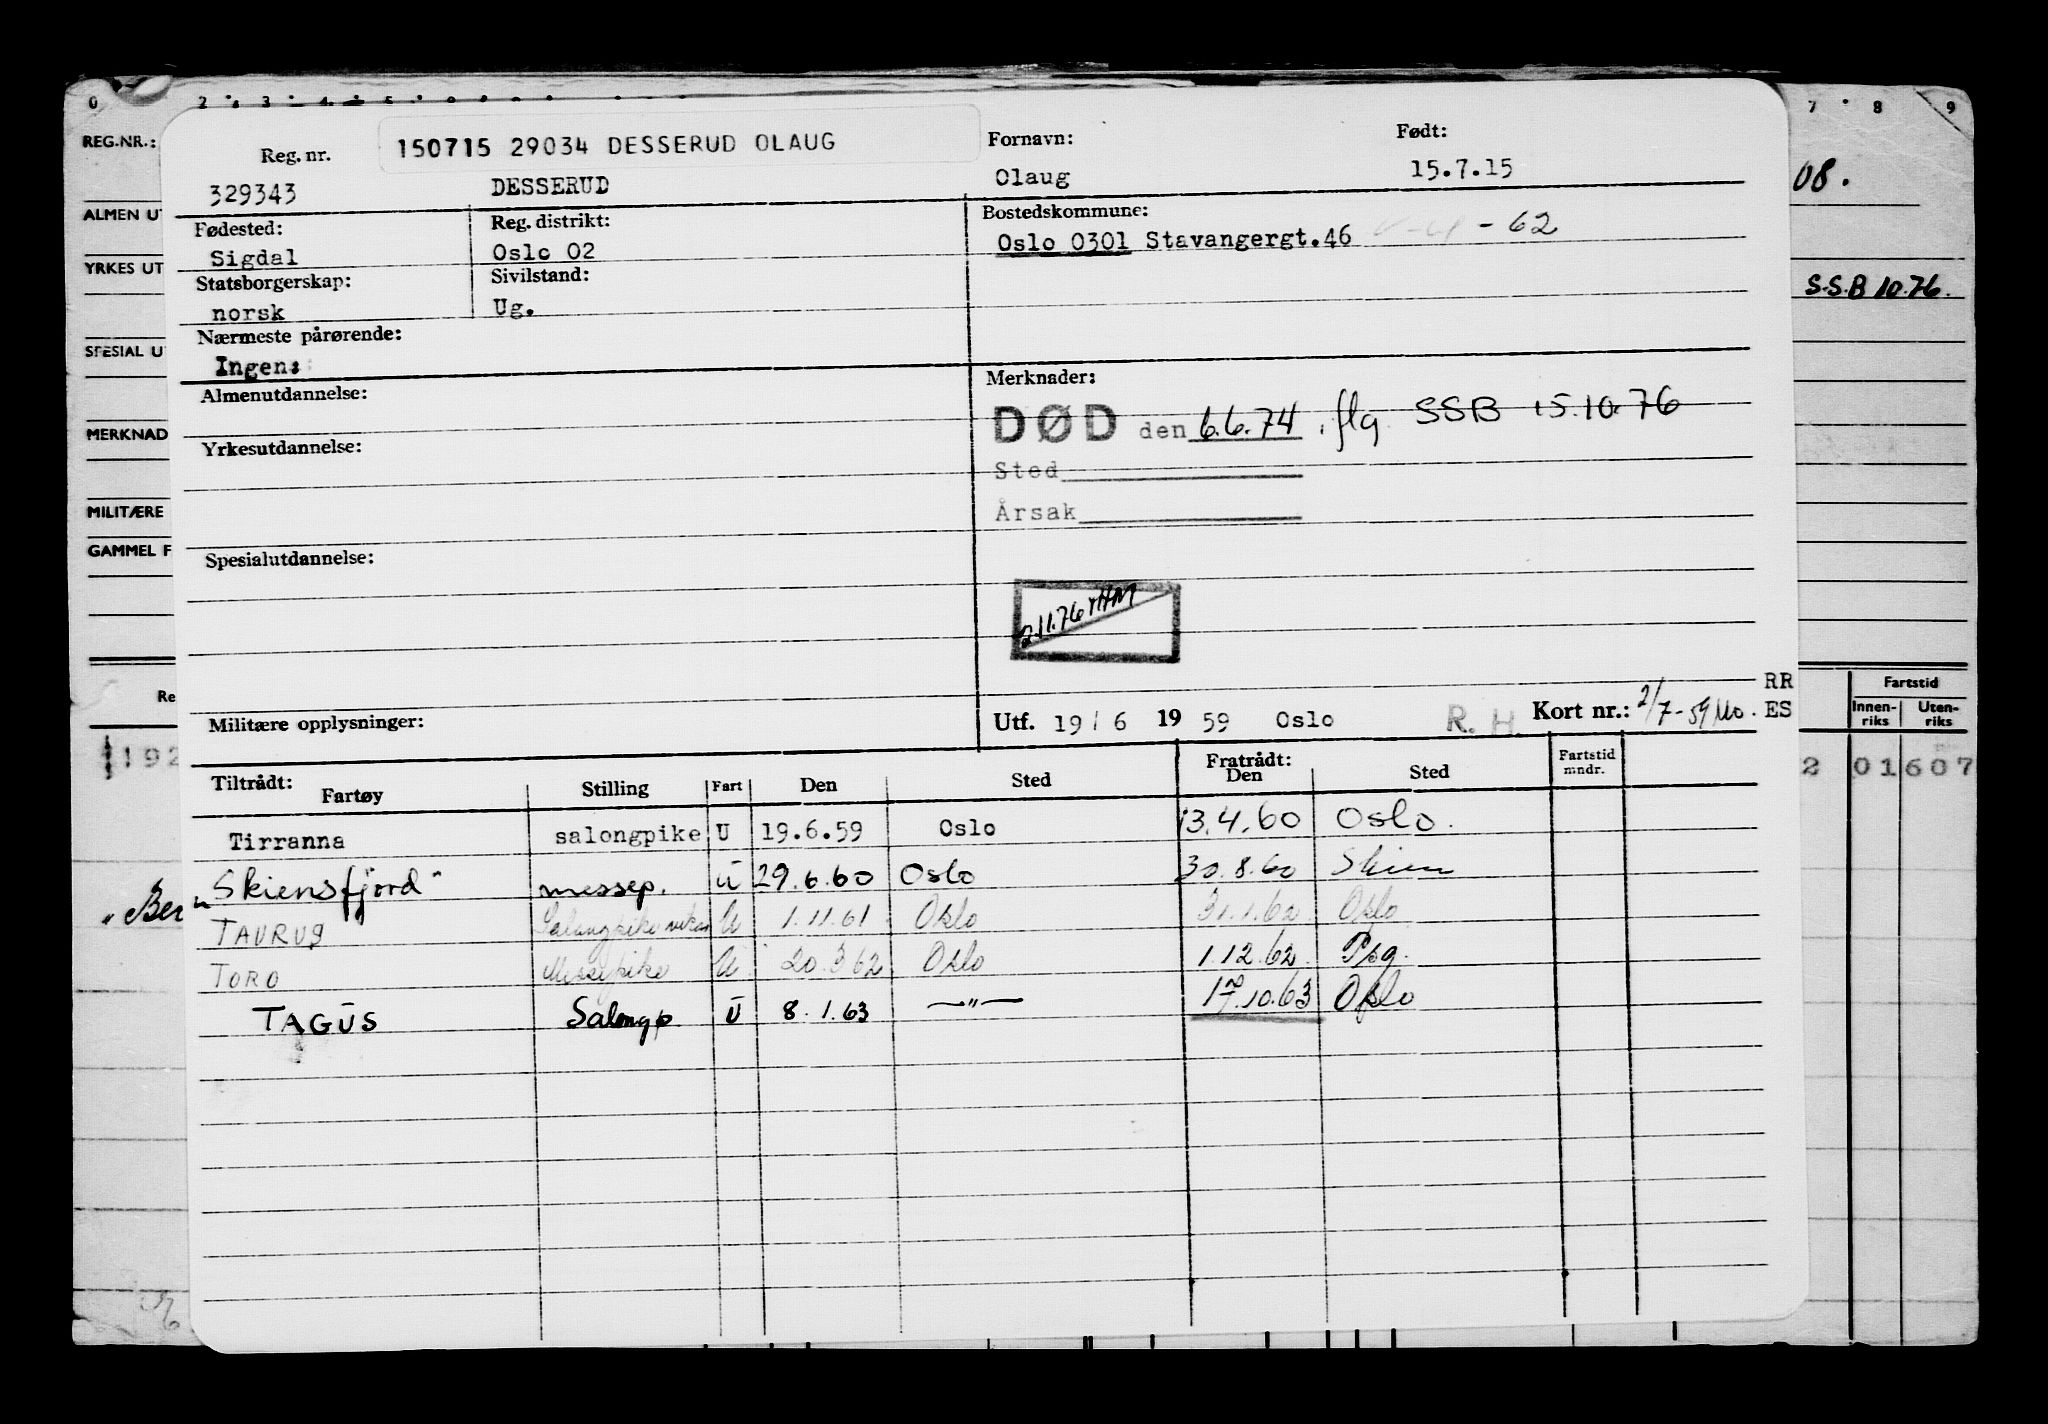 0 2 3 4 5 7 8 9
REG.NR.: Reg. nr. 150715 29034 DESSERUD OLAUG Fornavn: Født:
329343 DESSERUD Olaug 15.7.15 08.
ALMEN UT Fødested: Reg. distrikt: Bostedskommune:
Sigdal Oslo 02 Oslo 0301 Stavangergt.46 - 62
YRKES UT Statsborgerskap: Sivilstand: S.S.B 10.76.
norsk Ug.
Nærmeste pårørende:
SPESIAL U Ingen: Merknader:
Almenutdannelse:
DØD den 6.6.74 , flg. SSB 15.10.76
MERKNAD Yrkesutdannelse:
Sted
MILITÆRE Årsak
GAMMEL F Spesialutdannelse:
2.11.76
RR
Re Militære opplysninger: Utf. 19/6 1959 Oslo R. H. Kort nr.: 2/7-59 Mo. ES Fartstid
Innen-riks Uten-riks
192 2 01 607
Tiltrådt: Fratrådt: Fartstid mndr.
Fartøy Stilling Fart Den Sted Den Sted
Tirranna salongpike U 19.6.59 Oslo 13.4.60 Oslo.
"Skiensfjord" messep. U 29.6.60 Oslo 30.8.60 Skien
"Ber
TAURUS Salongpike vikar U 1.11.61 Oslo 31.1.62 Oslo
TORO Messepike U 20.3.62 Oslo 1.12.62 Psg.
TAGUS Salongp. U 8.1.63 —"— 17.10.63 Oslo